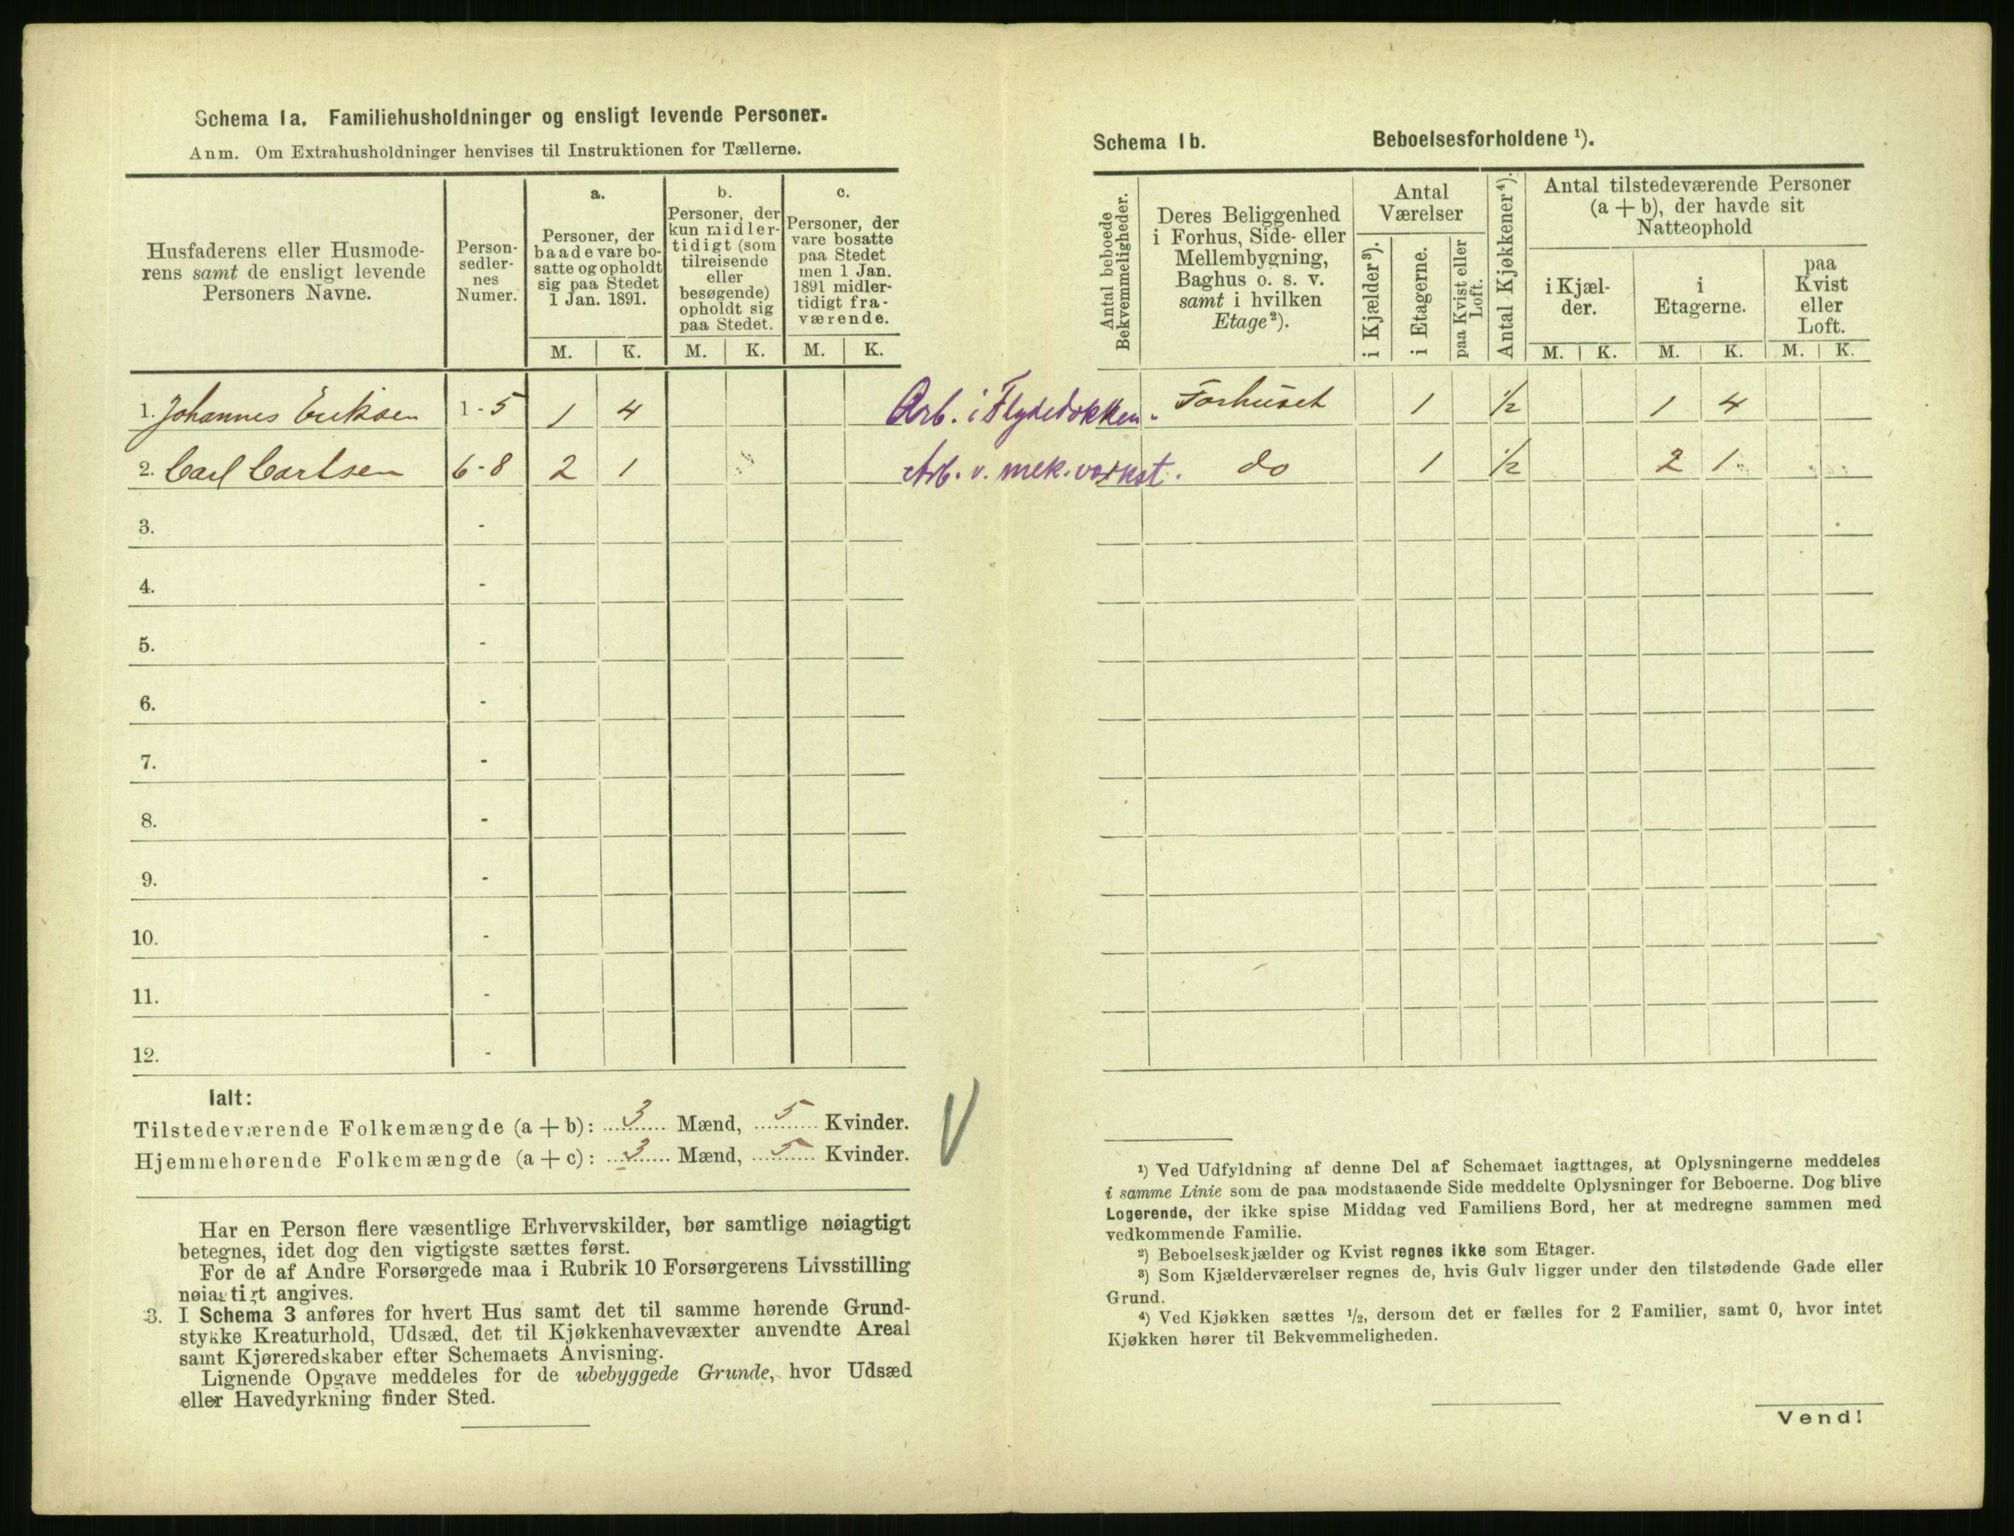 Schema 1a. Familiehusholdninger og ensligt levende Personer.
Anm. Om Extrahusholdninger henvises til Instruktionen for Tællerne.
Husfaderens eller Husmode-
rens samt de ensligt levende
Personers Navne.
Person-
sedler-
nes
Numer.
a.
Personer, der
baade vare bo-
satte og opholdt
sig paa Stedet
1 Jan. 1891.
M. K.
b.
Personer, der
kun midler-
tidigt (som
tilreisende
eller
besøgende)
opholdt sig
paa Stedet.
M. K.
c.
Personer, der
vare bosatte
paa Stedet
men 1 Jan.
1891 midler-
tidigt fra-
værende.
M. K.
1. Johannes Eriksen 1 - 5 1 4
2. Carl Carlsen 6 - 8 2 1
3. -
4. -
5. -
6. -
7. -
8. -
9. -
10. -
11. -
12. -
Ialt:
Tilstedeværende Folkemængde (a + b): 3 Mænd, 5 Kvinder.
Hjemmehørende Folkemængde (a + c): 3 Mænd, 5 Kvinder.
Har en Person flere væsentlige Erhvervskilder, bør samtlige nøiagtigt
betegnes, idet dog den vigtigste sættes først.
For de af Andre Forsørgede maa i Rubrik 10 Forsørgerens Livsstilling
nøiagtigt angives.
3. I Schema 3 anføres for hvert Hus samt det til samme hørende Grund-
stykke Kreaturhold, Udsæd, det til Kjøkkenhavevæxter anvendte Areal
samt Kjøreredskaber efter Schemaets Anvisning.
Lignende Opgave meddeles for de ubebyggede Grunde, hvor Udsæd
eller Havedyrkning finder Sted.
Schema 1b. Beboelsesforholdene ¹).
Antal beboede
Bekvemmeligheder.
Deres Beliggenhed
i Forhus, Side- eller
Mellembygning,
Baghus o. s. v.
samt i hvilken
Etage²).
Antal
Værelser
i Kjælder³).
i Etagerne.
paa Kvist eller
Loft.
Antal Kjøkkener⁴).
Antal tilstedeværende Personer
(a + b), der havde sit
Natteophold
i Kjæl-
der.
M. K.
i
Etagerne.
M. K.
paa
Kvist
eller
Loft.
M. K.
Arb. i Flydedokken. Forhuset 1 ½ 1 4
Arb. v. mek. værkst. do 1 ½ 2 1
¹) Ved Udfyldning af denne Del af Schemaet iagttages, at Oplysningerne meddeles
i samme Linie som de paa modstaaende Side meddelte Oplysninger for Beboerne. Dog blive
Logerende, der ikke spise Middag ved Familiens Bord, her at medregne sammen med
vedkommende Familie.
²) Beboelseskjælder og Kvist regnes ikke som Etager.
³) Som Kjælderværelser regnes de, hvis Gulv ligger under den tilstødende Gade eller
Grund.
⁴) Ved Kjøkken sættes ½, dersom det er fælles for 2 Familier, samt 0, hvor intet
Kjøkken hører til Bekvemmeligheden.
Vend!